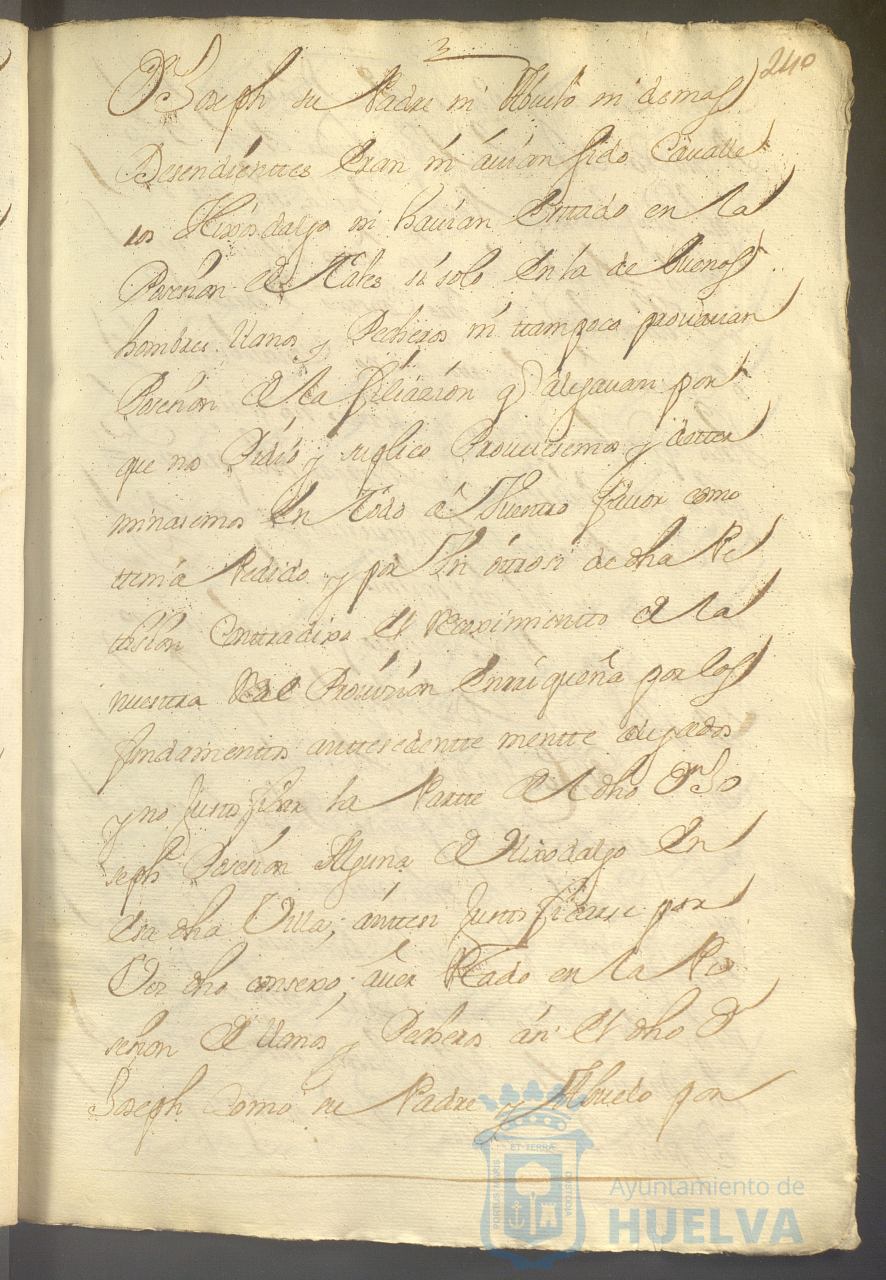 3
240
Dn Joseph su Padre ni Abuelo ni demas
Desendienttes Eran ni avian sido Cavalle
ros Hixosdalgo ni havian Estado en la
Posesion de tales si solo En la de buenos
hombres llanos y Pecheros ni ttampoco provavan
Posesion de la filiazion q alegavan por
que nos Pidio y suplico Proveiesemos y detter
minasemos En todo a Vuestro favor como
ttenia Pedido y por Un ottrosi de dha Pe
tision Contradixo el Recivimientto de la
nuestra Real Provision Enrriqueña por los
fundamenttos anttesedentte mentte alegados
y no Justtificar la Partte del dho Dn Jo
seph Posesion Alguna de Hixodalgo En
Esa dha Villa; anttes Justtificarse por
Vos dho consexo; aver Estado en la Po
sesion de llanos y Pecheros asi el dho Dn
Joseph Como su Padre y Abuelo por
PORTUS MARIS
ET TERRÆ
CUSTODIA
Ayuntamiento de
HUELVA